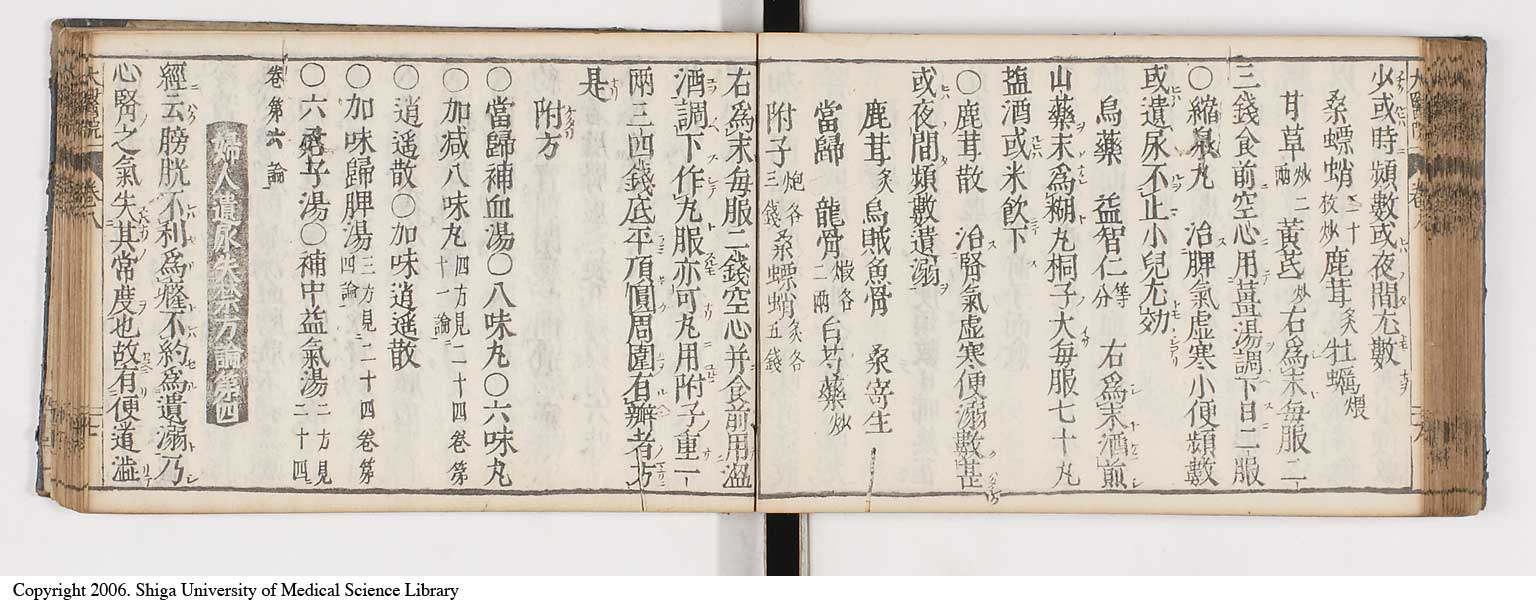 少或時頻數或夜間尤數
桑螵蛸二十枚炒鹿茸炙牡蠣煨
甘草炒二兩黄芪炒右爲末每服二
三錢食前空心用薑湯調下日二服
○縮泉丸 治脾氣虚寒小便頻數
或遺尿不止小兒尤効
烏藥 益智仁等分 右爲末酒煎
山藥末爲糊丸桐子大每服七十丸
塩酒或米飲下
○鹿茸散 治腎氣虚寒便溺數甚
或夜間頻數遺溺
鹿茸炙烏賊魚骨 桑寄生
當歸 龍骨煅各二兩白芍藥炒
附子炮三錢各桑螵蛸炙各五錢
右爲末每服二錢空心并食前用溫
酒調下作丸服亦可丸用附子重一
兩三四錢底平頂圓周圍有瓣者方
是
附方
○當歸補血湯○八味丸○六味丸
○加减八味丸四方見二十四卷第十一論
○逍遥散○加味逍遥散
○加味歸脾湯三方見二十四卷第四論
○六君子湯○補中益氣湯二方見二十四
卷第六論
婦人遺尿失禁方論第四
經云膀胱不利爲癃不約爲遺溺乃
心腎之氣失其常度也故有便道澁
Copyright 2006. Shiga University of Medical Science Library